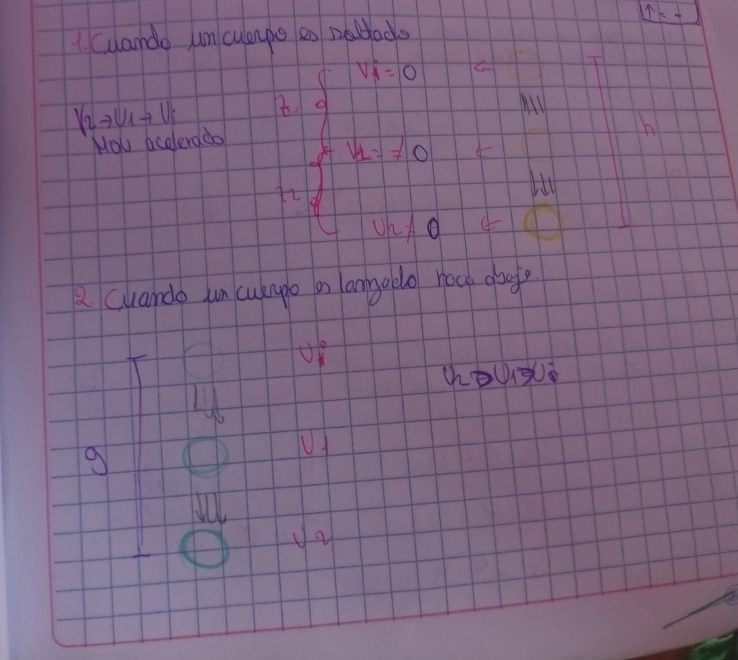 1. Cuando un cuerpo es soltado
Vi = 0 ←
V2 → V1 → Vi
Mov acelerado
t1
h
V1 = ≠ 0 ←
t2
V2 ≠ 0 ←
2 Cuando un cuerpo es lanzado hacia abajo
Vi
V2 > V1 > Vi
g
V1
V2